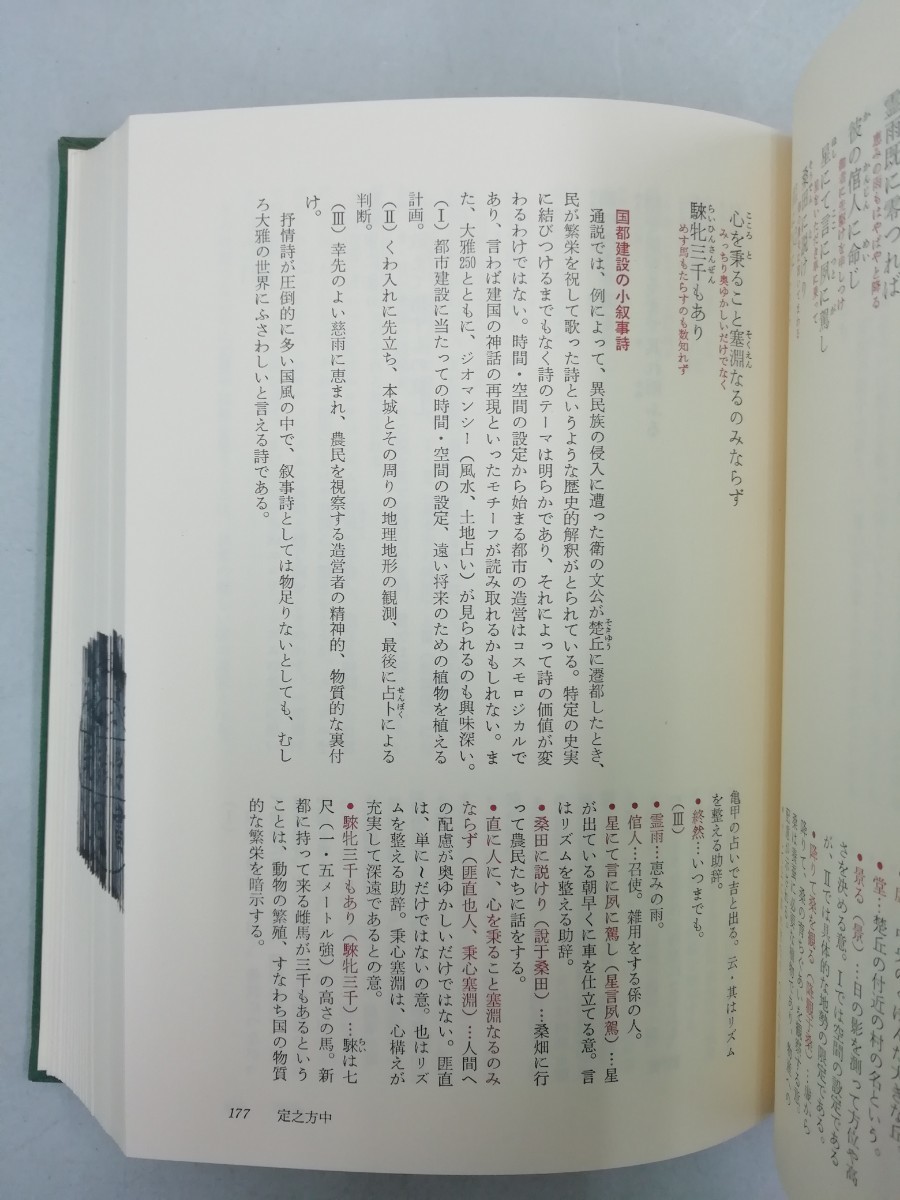 霊雨既に零つれば
恵みの雨もはやばやと降る
彼の倌人に命じ
星にて言に夙に駕し
心を秉ること塞淵なるのみならず
こころ
と
そくえん
みっちり奥ゆかしいだけでなく
騋牝三千もあり
らいひんさんぜん
めす馬もたらすのも数知れず
国都建設の小叙事詩
通説では、例によって、異民族の侵入に遭った衛の文公が楚丘に遷都したとき、
そきゆう
民が繁栄を祝して歌った詩というような歴史的解釈がとられている。特定の史実
に結びつけるまでもなく詩のテーマは明らかであり、それによって詩の価値が変
わるわけではない。時間・空間の設定から始まる都市の造営はコスモロジカルで
あり、言わば建国の神話の再現といったモチーフが読み取れるかもしれない。ま
た、大雅250とともに、ジオマンシー（風水、土地占い）が見られるのも興味深い。
（Ⅰ）都市建設に当たっての時間・空間の設定、遠い将来のための植物を植える
計画。
（Ⅱ）くわ入れに先立ち、本城とその周りの地理地形の観測、最後に占卜による
せんぼく
判断。
（Ⅲ）幸先のよい慈雨に恵まれ、農民を視察する造営者の精神的、物質的な裏付
け。
抒情詩が圧倒的に多い国風の中で、叙事詩としては物足りないとしても、むし
ろ大雅の世界にふさわしいと言える詩である。
●堂…楚丘の付近の村の名という。
●景る（景）…日の影を測って方位や高
さを決める意。Ⅰでは空間の設定である
が、Ⅱでは具体的な地勢の測定である。
亀甲の占いで吉と出る。云・其はリズム
を整える助辞。
●終然…いつまでも。
（Ⅲ）
●霊雨…恵みの雨。
●倌人…召使。雑用をする係の人。
●星にて言に夙に駕し（星言夙駕）…星
が出ている朝早くに車を仕立てる意。言
はリズムを整える助辞。
●桑田に説けり（説于桑田）…桑畑に行
って農民たちに話をする。
●直に人に、心を秉ること塞淵なるのみ
ならず（匪直也人、秉心塞淵）…人間へ
の配慮が奥ゆかしいだけではない。匪直
は、単に〜だけではないの意。也はリズ
ムを整える助辞。秉心塞淵は、心構えが
充実して深遠であるとの意。
●騋牝三千もあり（騋牝三千）…騋は七
らい
尺（一・五メートル強）の高さの馬。新
都に持って来る雌馬が三千もあるという
ことは、動物の繁殖、すなわち国の物質
的な繁栄を暗示する。
177　定之方中